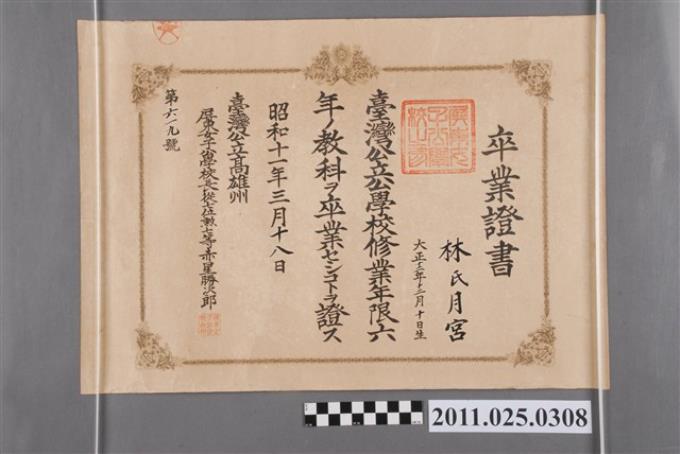 卒業證書
林氏月宮
大正十二年十二月十日生
臺灣公立公學校修業年限六
年ノ教科ヲ卒業セシコトヲ證ス
昭和十一年三月十八日
臺灣公立高雄州
屏東女子公學校長從七位勲七等赤星勝次郎
第六一九號
2011.025.0308